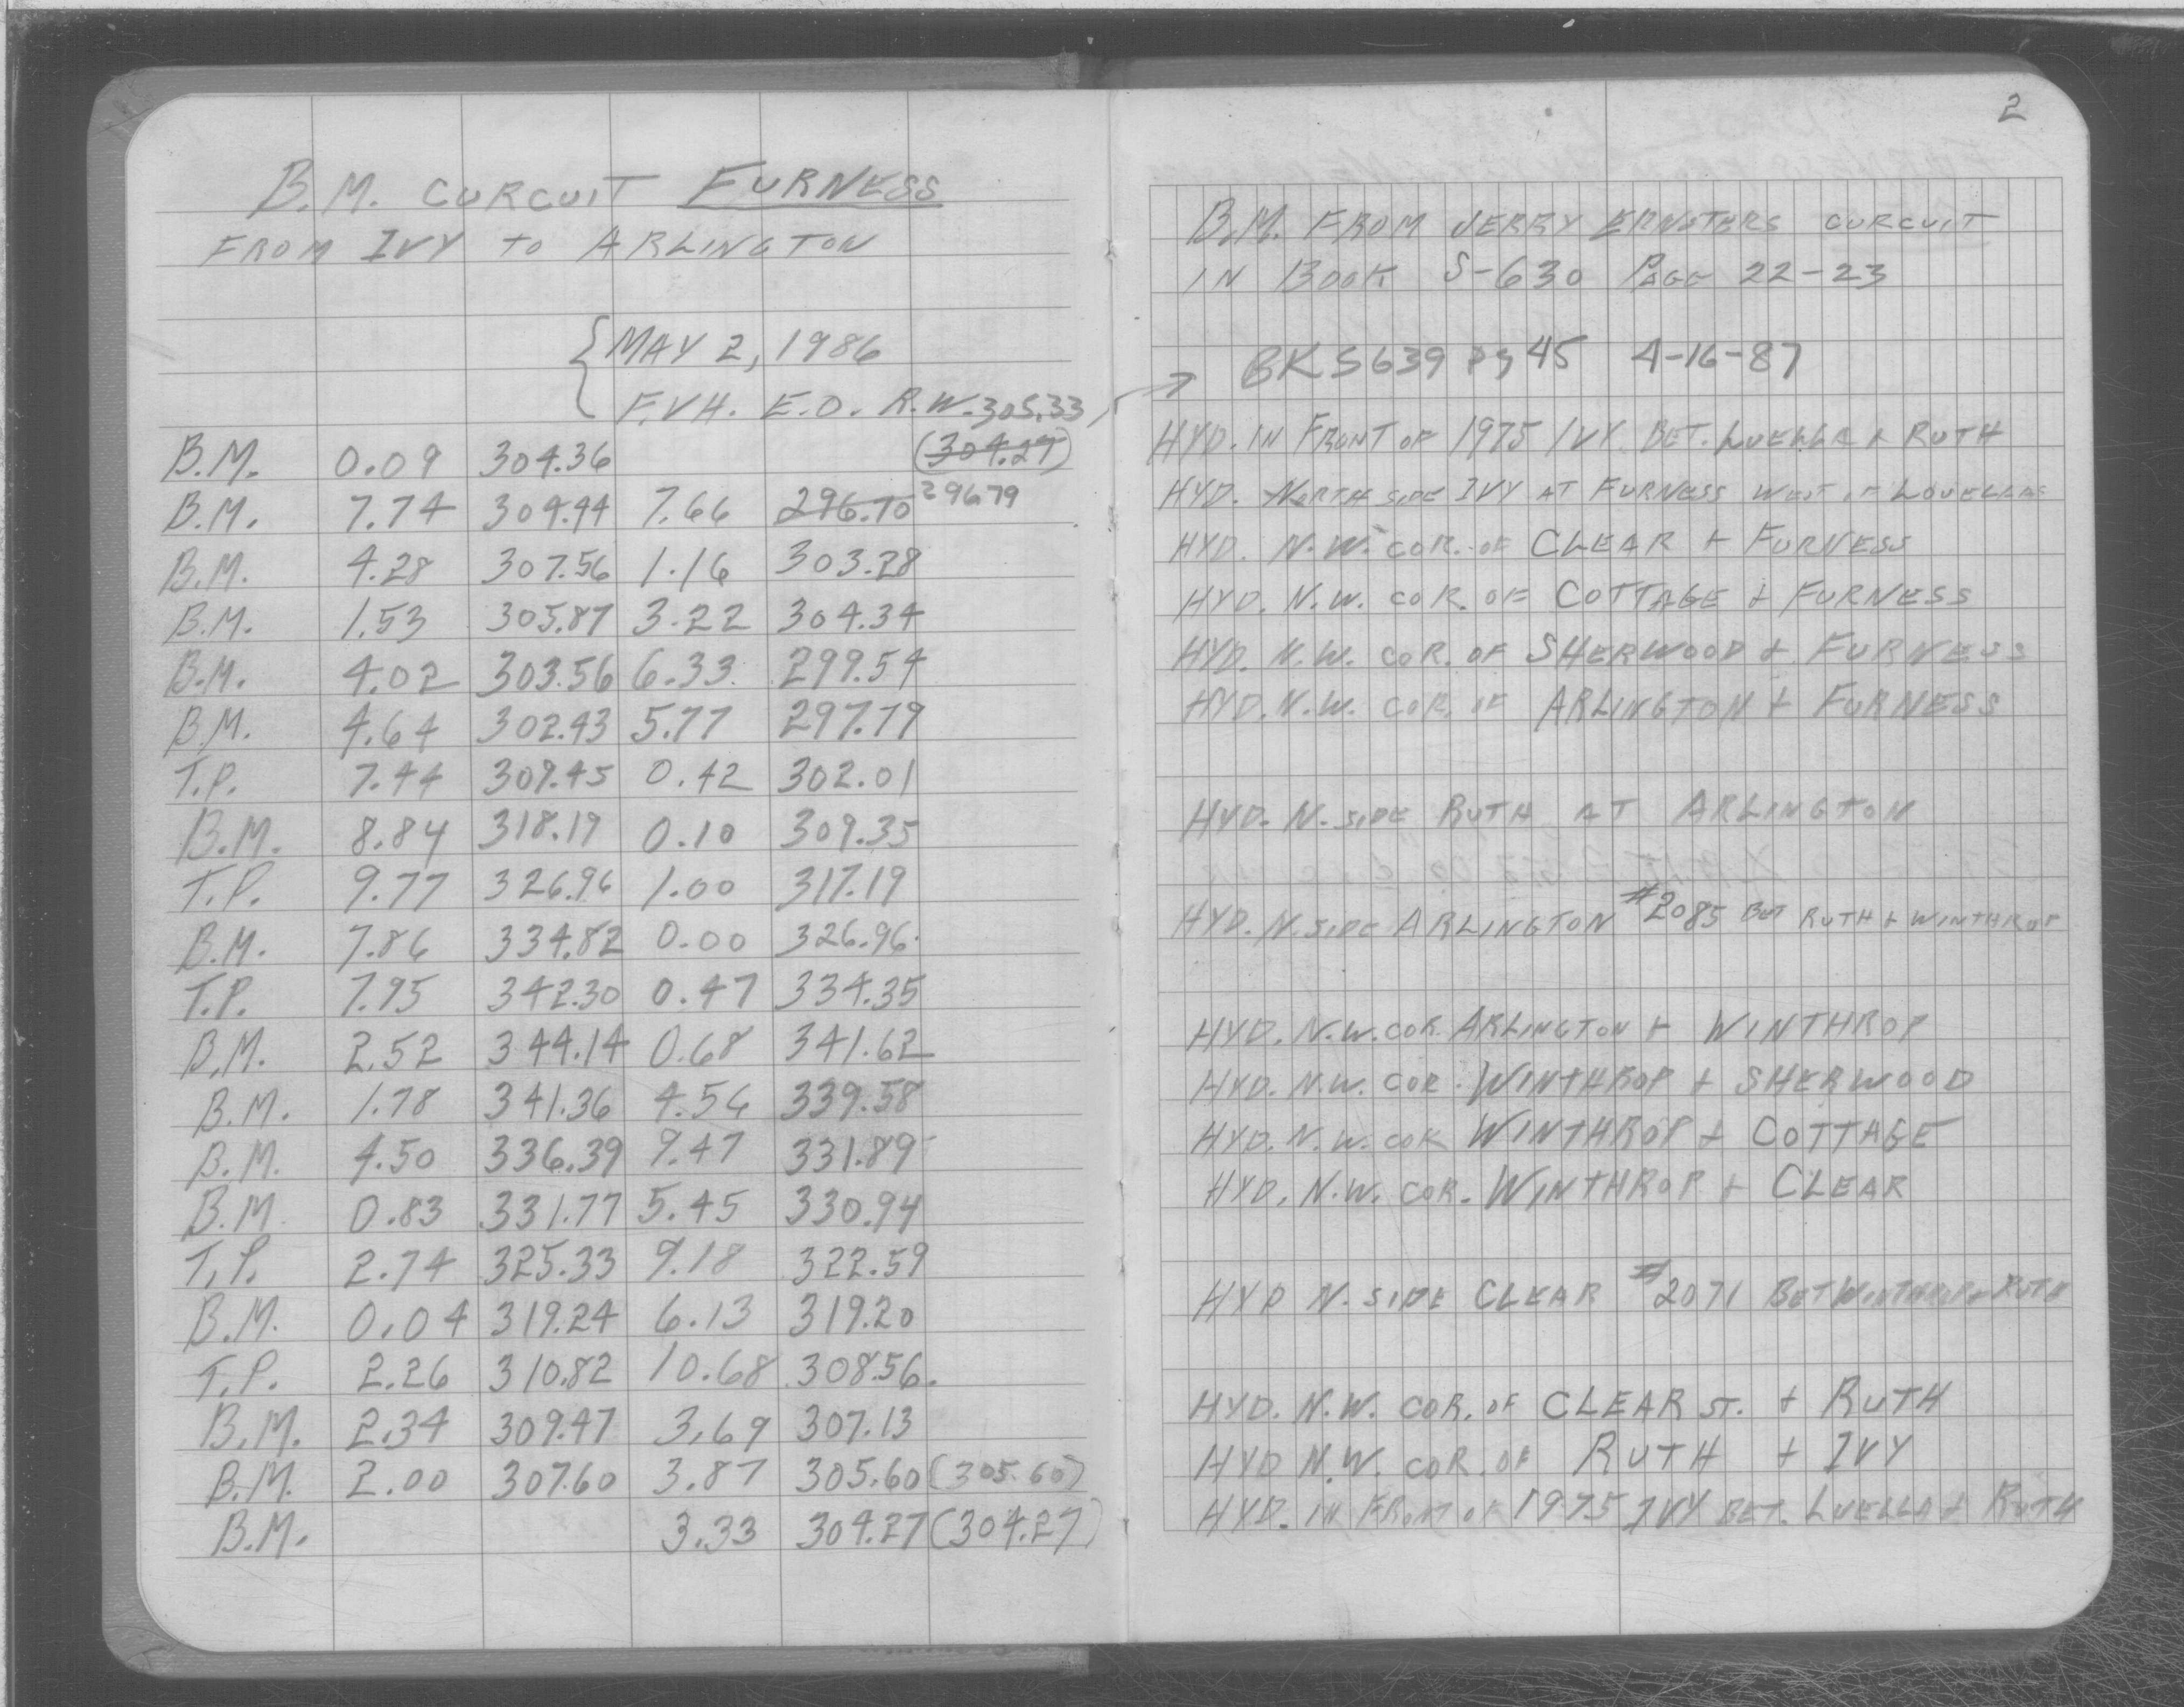 B.M. CURCUIT FURNESS
FROM IVY TO ARLINGTON
{ MAY 2, 1986
F.V.H. E.D. R.W. 305.33
B.M. 0.09 304.36 (304.27)
B.M. 7.74 304.44 7.66 296.70 296.79
B.M. 4.28 307.56 1.16 303.28
B.M. 1.53 305.87 3.22 304.34
B.M. 4.02 303.56 6.33 299.54
B.M. 4.64 302.43 5.77 297.79
T.P. 7.44 309.45 0.42 302.01
B.M. 8.84 318.19 0.10 309.35
T.P. 9.77 326.96 1.00 317.19
B.M. 7.86 334.82 0.00 326.96
T.P. 7.95 342.30 0.47 334.35
B.M. 2.52 344.14 0.68 341.62
B.M. 1.78 341.36 4.56 339.58
B.M. 4.50 336.39 9.47 331.89
B.M. 0.83 331.77 5.45 330.94
T.P. 2.74 325.33 9.18 322.59
B.M. 0.04 319.24 6.13 319.20
T.P. 2.26 310.82 10.68 308.56
B.M. 2.34 309.47 3.69 307.13
B.M. 2.00 307.60 3.87 305.60 (305.60)
B.M. 3.33 304.27 (304.27)
2
B.M. FROM JERRY ERNSTERS CURCUIT
IN BOOK S-630 PAGE 22-23
→ BK S639 pg 45 4-16-87
HYD. IN FRONT OF 1975 IVY BET. LUELLA & RUTH
HYD. NORTH SIDE IVY AT FURNESS WEST OF
HYD. N.W. COR. OF CLEAR + FURNESS
HYD. N.W. COR. OF COTTAGE + FURNESS
HYD. N.W. COR. OF SHERWOOD + FURNESS
HYD. N.W. COR. OF ARLINGTON + FURNESS
HYD. N. SIDE RUTH AT ARLINGTON
HYD. N. SIDE ARLINGTON #2085 BET RUTH + WINTHROP
HYD. N.W. COR ARLINGTON + WINTHROP
HYD. N.W. COR. WINTHROP + SHERWOOD
HYD. N.W. COR WINTHROP + COTTAGE
HYD. N.W. COR. WINTHROP + CLEAR
HYD N. SIDE CLEAR #2071 BET WINTHROP + RUTH
HYD. N.W. COR. OF CLEAR ST. + RUTH
HYD N.W. COR. OF RUTH + IVY
HYD. IN FRONT OF 1975 IVY BET. LUELLA + RUTH